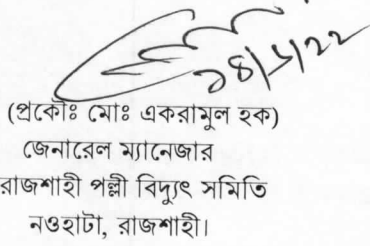 (প্রকৌঃ মোঃ একরামুল হক)
জেনারেল ম্যানেজার
রাজশাহী পল্লী বিদ্যুৎ সমিতি
নওহাটা, রাজশাহী।